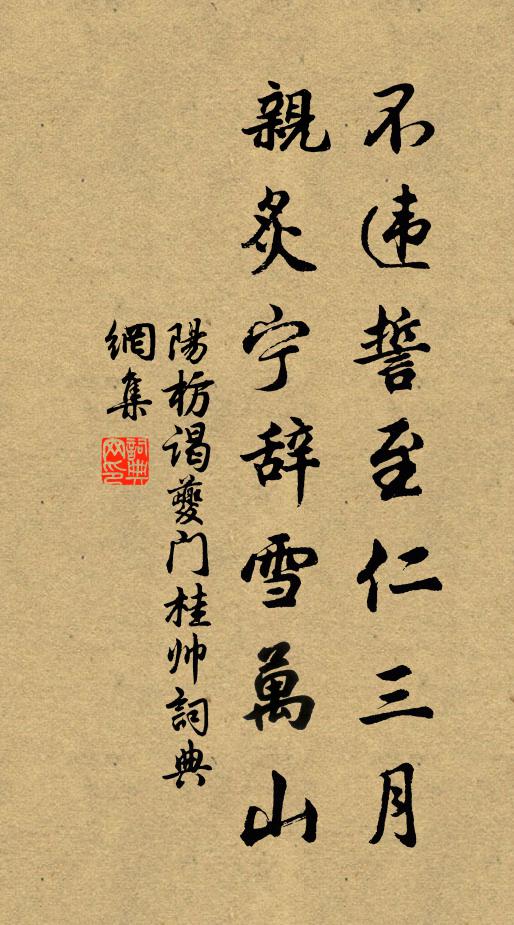 不违誓至仁三月
親炙宁辞雪萬山
陽枋谒夔门桂帅詞典
網集
詞典
网印